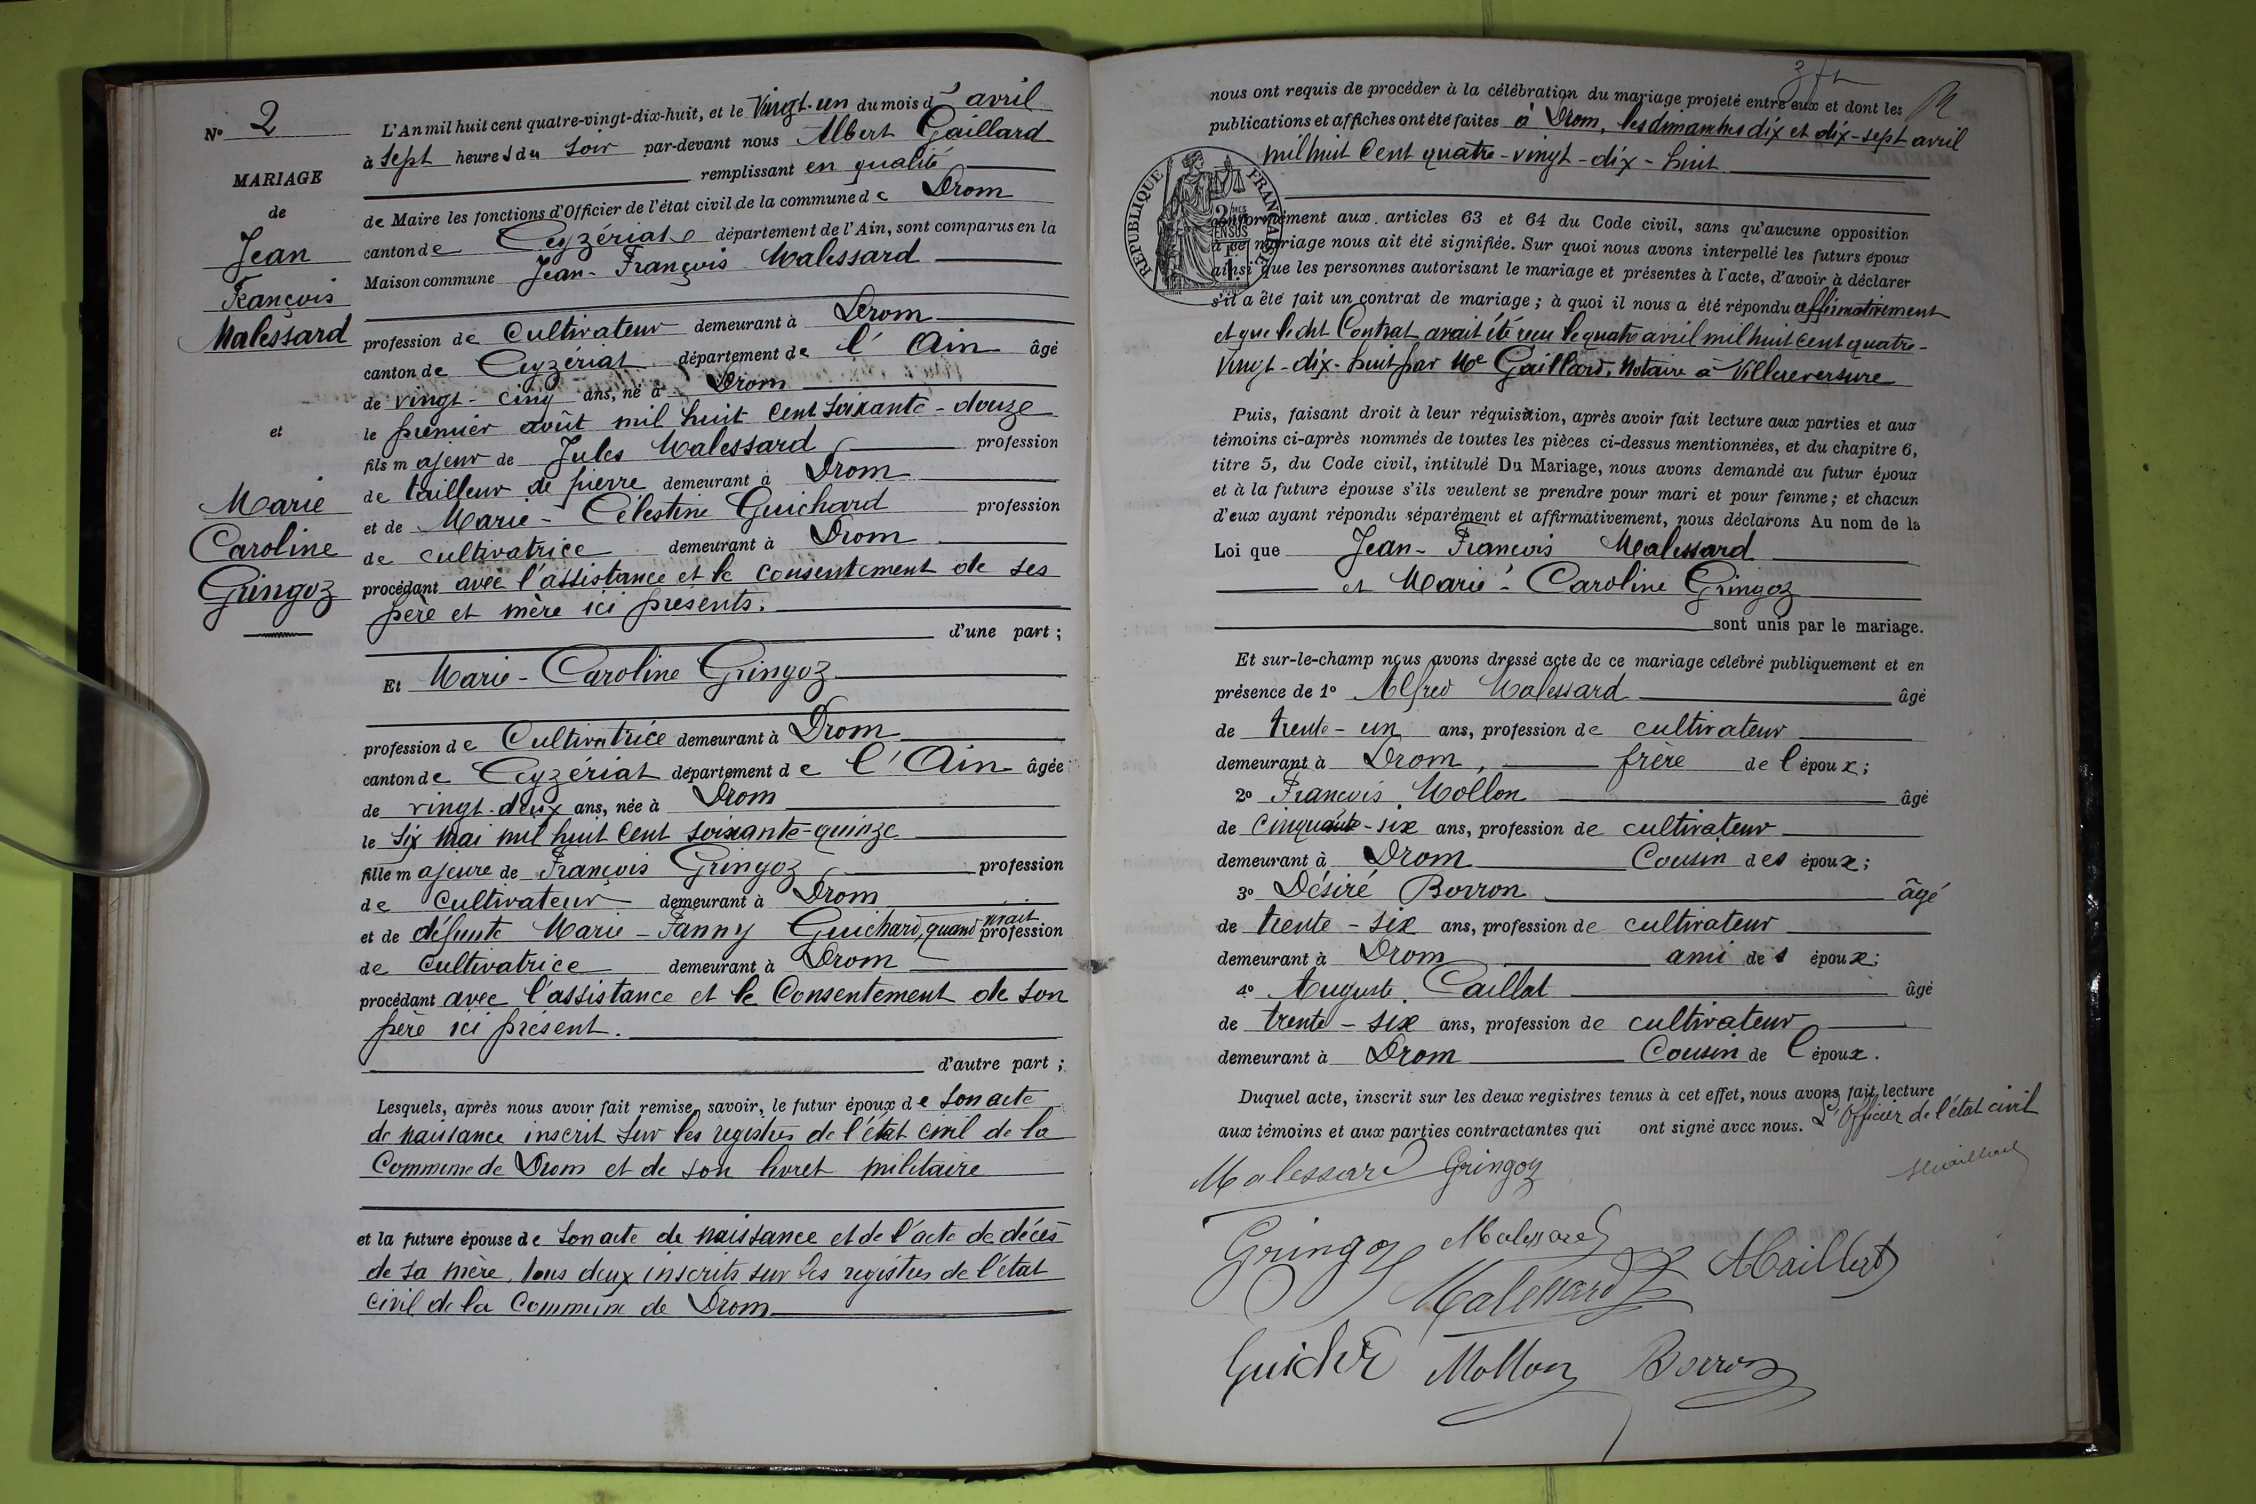 N° 2
MARIAGE
de
Jean
François
Malessard
et
Marie
Caroline
Gringoz
L'An mil huit cent quatre-vingt-dix-huit, et le Vingt-un du mois d' avril
à sept heures du soir par-devant nous Albert Gaillard
remplissant en qualité
de Maire les fonctions d'Officier de l'état civil de la commune de Drom
canton de Ceyzériat département de l'Ain, sont comparus en la
Maison commune Jean-François Malessard
profession de Cultivateur demeurant à Drom
canton de Ceyzériat département de l'Ain âgé
de vingt-cinq ans, né à Drom
le premier août mil huit cent soixante-douze
fils majeur de Jules Malessard profession
de tailleur de pierre demeurant à Drom
et de Marie-Célestine Guichard profession
de cultivatrice demeurant à Drom
procédant avec l'assistance et le consentement de ses
père et mère ici présents.
d'une part;
Et Marie-Caroline Gringoz
profession de Cultivatrice demeurant à Drom
canton de Ceyzériat département de l'Ain âgée
de vingt-deux ans, née à Drom
le six mai mil huit cent soixante-quinze
fille majeure de François Gringoz profession
de Cultivateur demeurant à Drom
et de défunte Marie-Fanny Guichard, quand vivait profession
de Cultivatrice demeurant à Drom
procédant avec l'assistance et le Consentement de son
père ici présent.
d'autre part;
Lesquels, après nous avoir fait remise, savoir, le futur époux de son acte
de naissance inscrit sur les registres de l'état civil de la
Commune de Drom et de son livret militaire
et la future épouse de son acte de naissance et de l'acte de décès
de sa mère, tous deux inscrits sur les registres de l'état
civil de la Commune de Drom
nous ont requis de procéder à la célébration du mariage projeté entre eux et dont les
publications et affiches ont été faites à Drom, les dimanches dix et dix-sept avril
mil huit cent quatre-vingt-dix-huit
RÉPUBLIQUE FRANÇAISE
conformément aux articles 63 et 64 du Code civil, sans qu'aucune opposition
à ce mariage nous ait été signifiée. Sur quoi nous avons interpellé les futurs époux
ainsi que les personnes autorisant le mariage et présentes à l'acte, d'avoir à déclarer
s'il a été fait un contrat de mariage; à quoi il nous a été répondu affirmativement
et que ledit Contrat avait été reçu le quatre avril mil huit cent quatre-
vingt-dix-huit par Me Gaillard, Notaire à Villereversure
Puis, faisant droit à leur réquisition, après avoir fait lecture aux parties et aux
témoins ci-après nommés de toutes les pièces ci-dessus mentionnées, et du chapitre 6,
titre 5, du Code civil, intitulé Du Mariage, nous avons demandé au futur époux
et à la future épouse s'ils veulent se prendre pour mari et pour femme; et chacun
d'eux ayant répondu séparément et affirmativement, nous déclarons Au nom de la
Loi que Jean-François Malessard
et Marie-Caroline Gringoz
sont unis par le mariage.
Et sur-le-champ nous avons dressé acte de ce mariage célébré publiquement et en
présence de 1° Alfred Malessard âgé
de trente-un ans, profession de cultivateur
demeurant à Drom, frère de l'époux;
2° François Mollon âgé
de cinquante-six ans, profession de cultivateur
demeurant à Drom Cousin des époux;
3° Désiré Borron âgé
de trente-six ans, profession de cultivateur
demeurant à Drom ami des époux;
4° Auguste Caillat âgé
de trente-six ans, profession de cultivateur
demeurant à Drom Cousin de l'époux.
Duquel acte, inscrit sur les deux registres tenus à cet effet, nous avons fait lecture
aux témoins et aux parties contractantes qui ont signé avec nous. L'Officier de l'état civil
Malessard Gringoz
Gringoz Malessard
Malessard
Mollon Borron